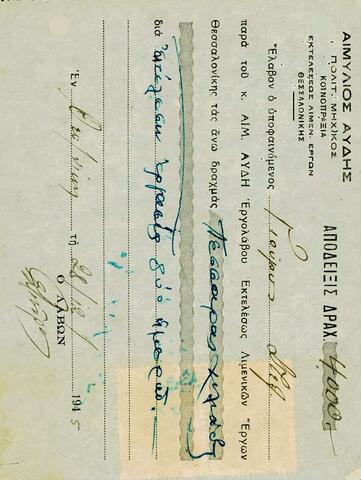 ΑΙΜΥΛΙΟΣ ΑΥΔΗΣ
ΠΟΛΙΤ. ΜΗΧ)ΚΟΣ
ΚΟΙΝΟΠΡΑΞΙΑ
ΕΚΤΕΛΕΣΕΩΣ ΛΙΜΕΝ. ΕΡΓΩΝ
ΘΕΣΣΑΛΟΝΙΚΗΣ
ΑΠΟΔΕΙΞΙΣ ΔΡΑΧ. 4000.
Ἔλαβον ὁ ὑποφαινόμενος
παρὰ τοῦ κ. ΑΙΜ. ΑΥΔΗ Ἐργολάβου Ἐκτελέσεως Λιμενικῶν Ἔργων
Θεσσαλονίκης τὰς ἄνω δραχμὰς Τέσσαρας χιλιάδας
διὰ ἐκτέλεσιν ἐργασίας δύο ἡμερῶν.
Ἐν τῇ 28/12/ 1945
Ο ΛΑΒΩΝ